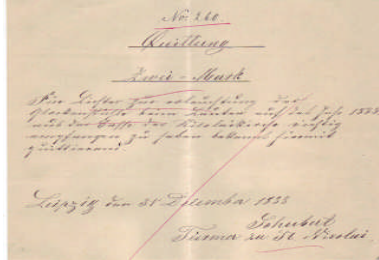 No: 260.
Quittung
Zwei - Mark
Für Lichter zur erleuchtung der
Glockenstube beim Läuten auf das Jahr 1883.
aus der Casse der Nicolaikirche richtig
empfangen zu haben bekennt hiermit
quittirend.
Leipzig den 31 Dezember 1883
Schubert
Türmer zu St. Nicolai.